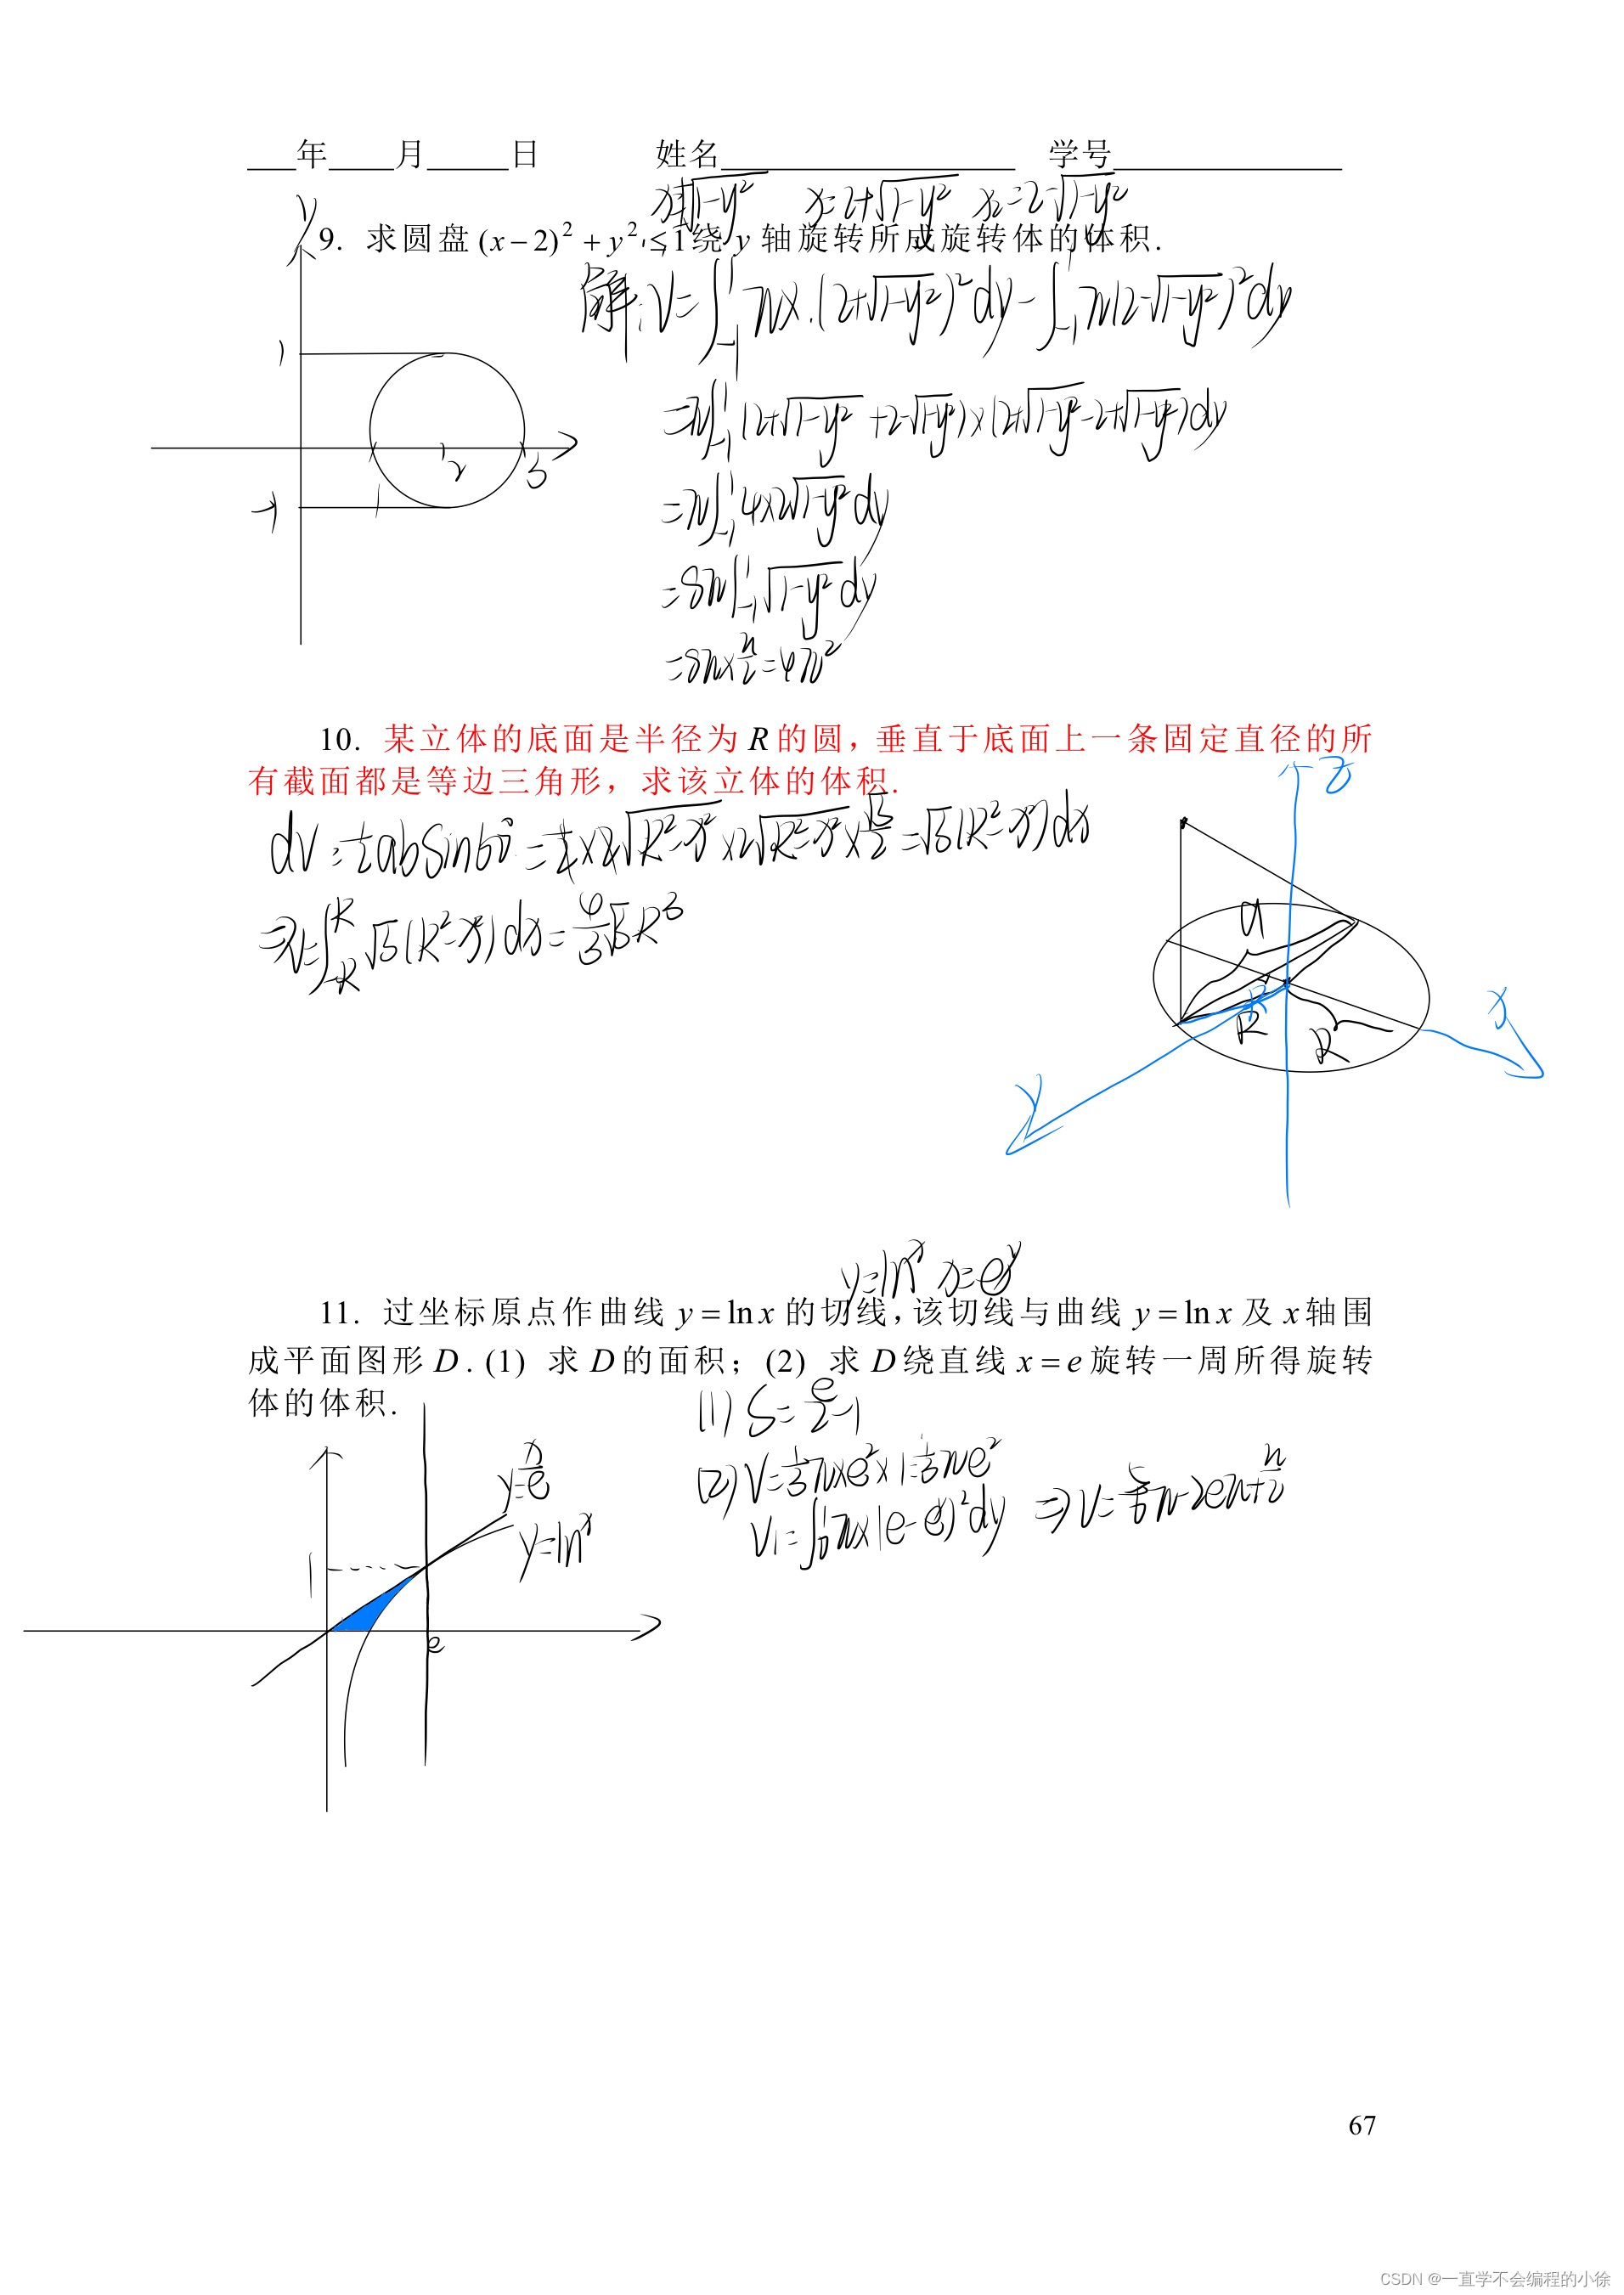 年 月 日 姓名 学号
x=±√(1-y²) x=2+√(1-y²) x₂=2-√(1-y²)
y
9. 求圆盘 (x-2)²+y²≤1绕 y 轴旋转所成旋转体的体积.
解: V=∫₋₁¹ πx.(2+√(1-y²))²dy-∫₋₁¹ π(2-√(1-y²))²dy
1
=π∫₋₁¹ (2+√(1-y²)+2-√(1-y²))×(2+√(1-y²)-2+√(1-y²))dy
2 3
-1 1
=π∫₋₁¹ 4×2√(1-y²)dy
=8π∫₋₁¹ √(1-y²)dy
=8π×π/2=4π²
10. 某立体的底面是半径为 R 的圆, 垂直于底面上一条固定直径的所
有截面都是等边三角形, 求该立体的体积.
z
dV=½absin60°=½×2√(R²-x²)×2√(R²-x²)×√3/2=√3(R²-x²)dx
⇒V=∫₋ᵣᴿ √3(R²-x²)dx=4/3√3R³
a
R R
x
y
y=lnx x=eʸ
11. 过坐标原点作曲线 y=lnx 的切线, 该切线与曲线 y=lnx 及 x轴围
成平面图形 D. (1) 求 D的面积; (2) 求 D绕直线 x=e旋转一周所得旋转
体的体积.
(1) S=e/2-1
(2) V=⅓π×e²×1=⅓πe²
V₁=∫₀¹π×(e-eʸ)²dy ⇒V=5/6π-2eπ+π/2
y=x/e
y=lnx
1
e
67
CSDN @一直学不会编程的小徐